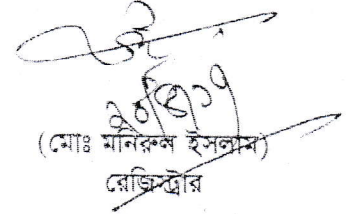 (মোঃ মনিরুল ইসলাম)
রেজিস্ট্রার